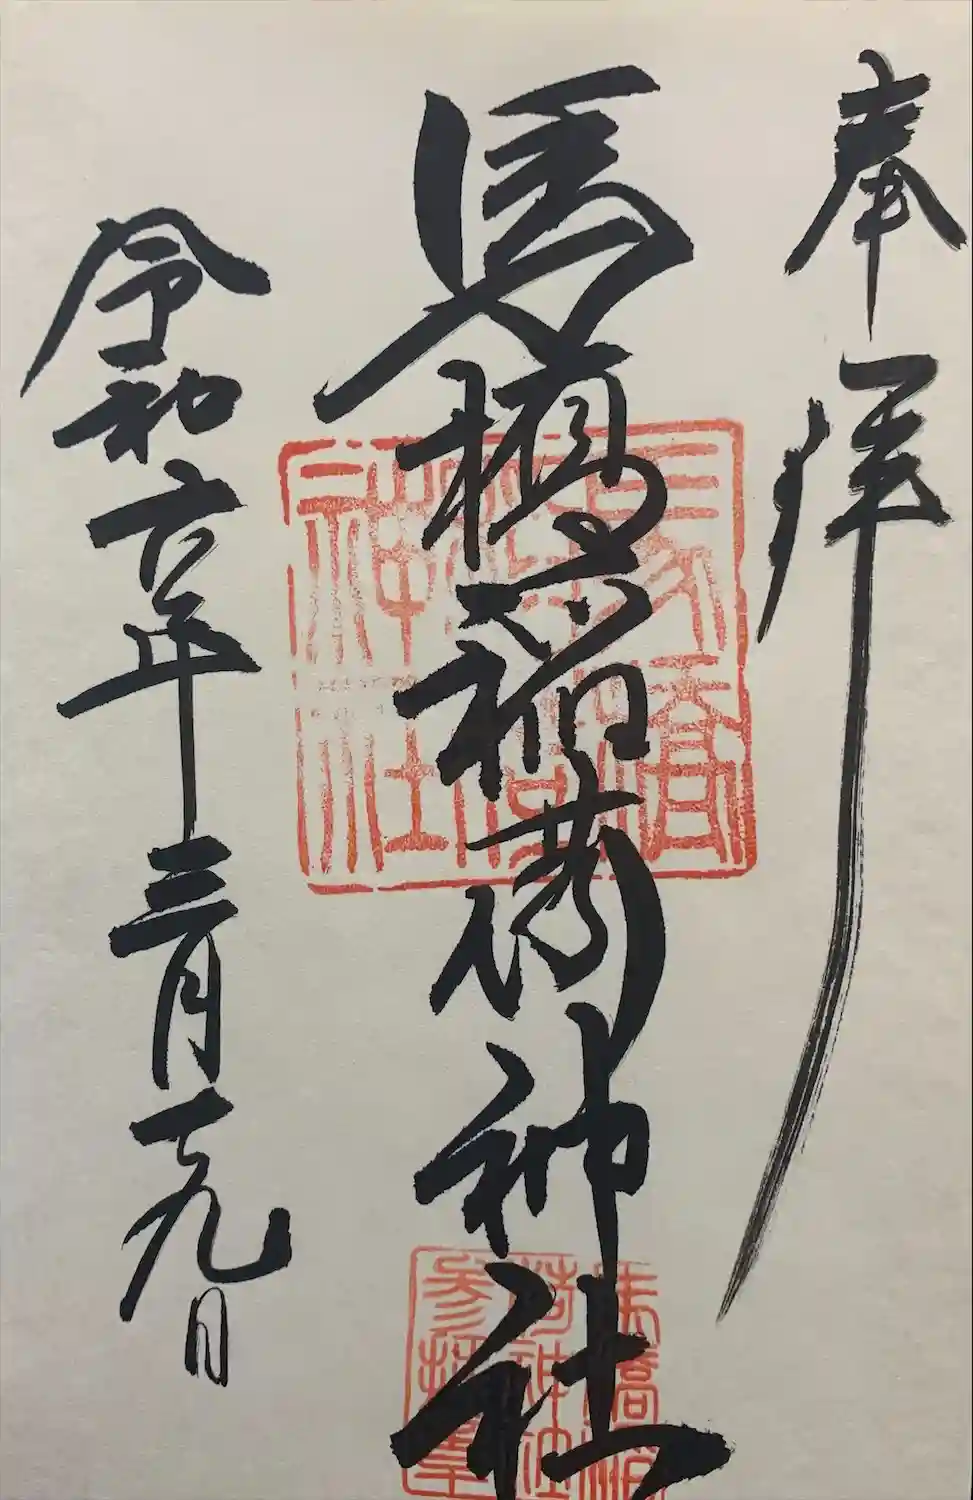 奉拝
馬橋稲荷神社
令和六年三月十九日
馬橋稲荷神社
馬橋稲荷神社参拝章